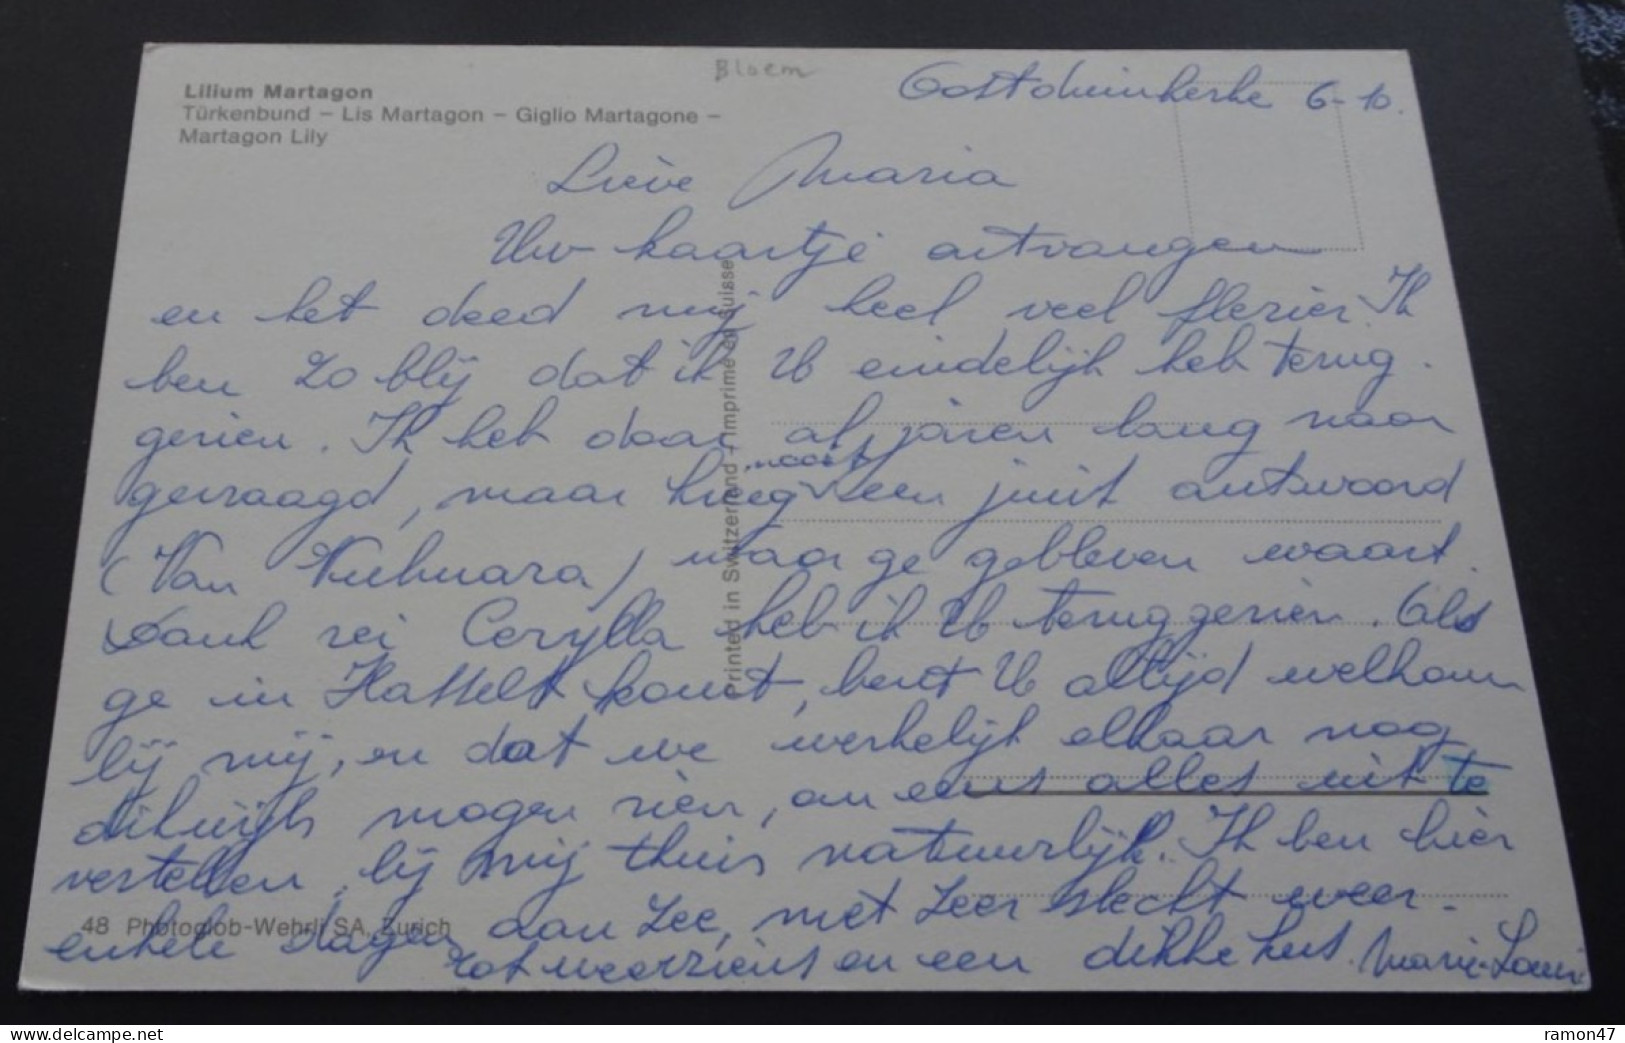 Bloem
Lilium Martagon
Türkenbund – Lis Martagon – Giglio Martagone –
Martagon Lily
Oostduinkerke 6-10.
Lieve Maria
Uw kaartje ontvangen
en het deed mij heel veel plezier. Ik
ben zo blij dat ik U eindelijk heb terug
gezien. Ik heb daar al jaren lang naar
gevraagd, maar kreeg nooit een juist antwoord
(Van) waar ge gebleven waart.
Dank zei heb ik U teruggezien. Als
ge in Hasselt komt, bent U altijd welkom
bij mij, en dat we werkelijk elkaar nog
dikwijls mogen zien, om eens alles uit te
vertellen, bij mij thuis natuurlijk. Ik ben hier
enkele dagen aan zee, met zeer slecht weer.
Tot weerziens en een dikke kus. Marie-Louise
Printed in Switzerland - Imprimé en Suisse
48 Photoglob-Wehrli SA, Zurich
www.delcampe.net
ramon47